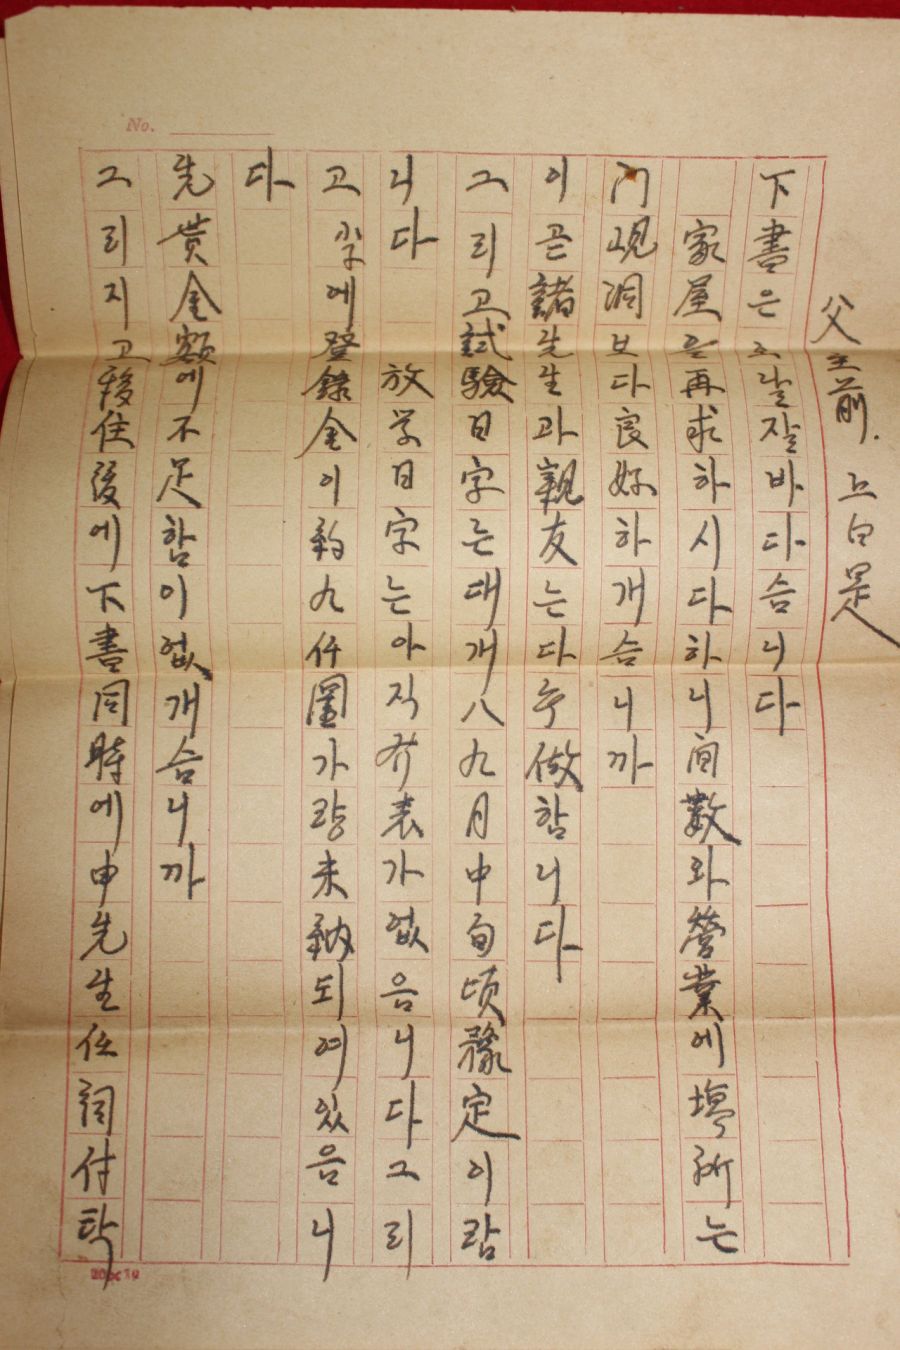 父主前. 上白是
下書은 오날 잘 바다습니다
家屋을 再求하시다하니 间數와 營業에 場所는
门峴洞보다 良好하개습니까
이곧 諸先生과 親友는 다 無 做함니다
그리고 試驗日字는 대개 八九月 中旬頃 豫定이람
니다 放学日字는 아직 发表가 없음니다 그리
고 学에 登錄金이 約 九仟圜가량 未納되여있음니
다
先 貰金額에 不足함이 없개습니까
그리지고 移住後에 下書 同時에 申先生任 付탁
No.
20×10